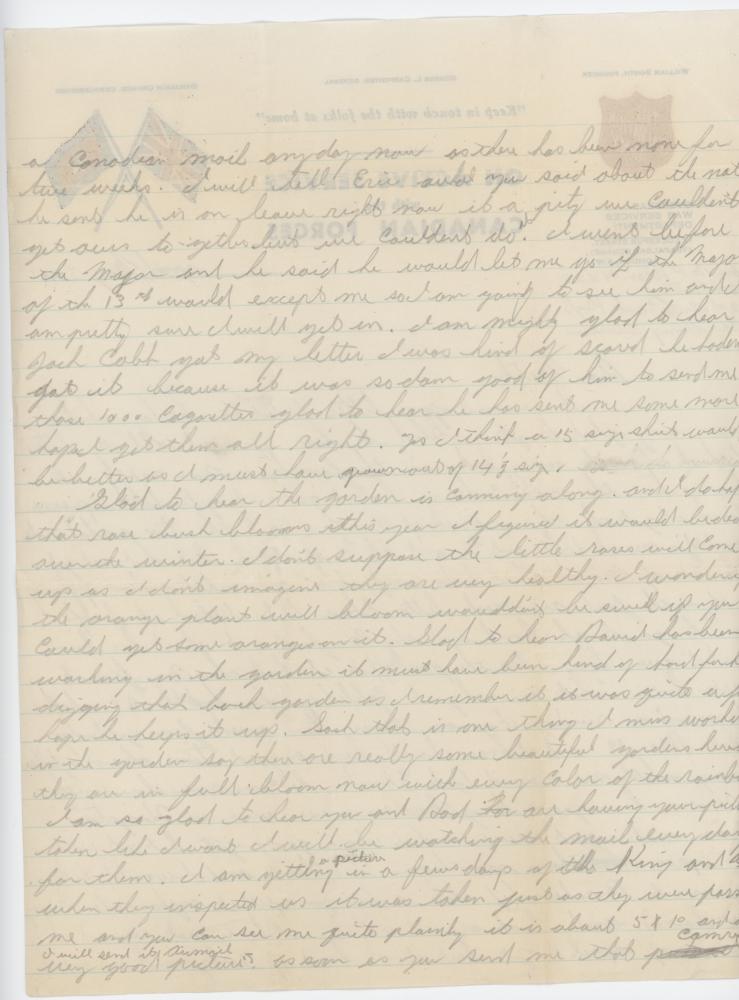 a Canadian mail anyday now as there has been none for
two weeks. I will tell Eric what you said about the
he sent he is on leave right now it a pity we Couldent
get ours to gether but we Couldent do. I went before
the Major and he said he would let me go if the Majo
of the 13rd would except me so I am going to see him and I
am pretty sure I will get in. I am mighty glad to hear
Jack Cobb got my letter I was kind of scared he haden
got it because it was so dam good of him to send me
those 1000 Cagarettes glad to hear he has sent me some more
hope I get them all right. Yes I think a 15 size shirt would
be better as I must have grown out of 14½ size.
Glad to hear the garden is comming along. and I do hop
that rose bush blooms this year I figured it would be dea
over the winter. I don't suppose the little roses will Come
up as I don't imagine they are very healthy. I wonder i
the orange plant will bloom woulddnt be swell if you
Could get some oranges on it. Glad to hear David has been
working in the garden it must have been kind of hard for h
digging that back garden as I remember it, it was quite a
hope he keeps it up. Gosh that is one thing I miss workin
in the garden say there are really some beautiful gardens here
they are in full bloom now with every color of the rainbo
I am so glad to hear you and Dad are having your pict
taken like I want I will be watching the mail every day
for them. I am getting a picture in a few days of the King and
when they inspected us it was taken just as they were pass
me and you can see me quite plainly it is about 5 x 10 and
I will send it Airmail
very good picture. as soon as you send me that